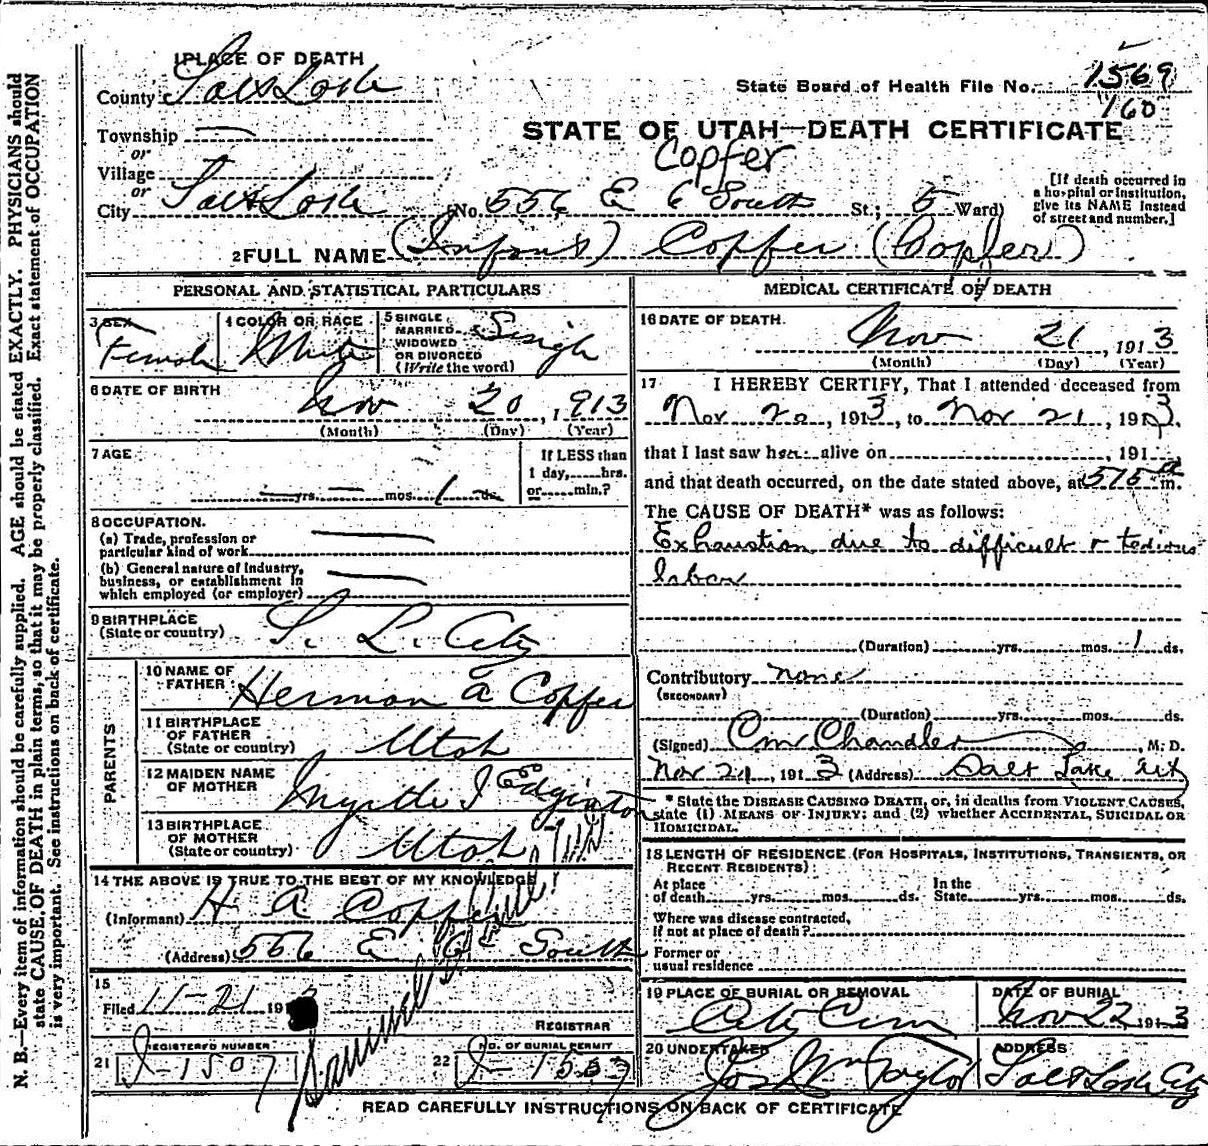 1 PLACE OF DEATH
County Salt Lake
State Board of Health File No. 1569
160
Township —
or
STATE OF UTAH—DEATH CERTIFICATE
Copfer
Village
or
City Salt Lake (No. 556 E 6 South St.; 5 Ward)
[If death occurred in a hospital or institution, give its NAME instead of street and number.]
2 FULL NAME (Infant) Copfer (Copfer)
PERSONAL AND STATISTICAL PARTICULARS
3 SEX Female
4 COLOR OR RACE White
5 SINGLE MARRIED WIDOWED OR DIVORCED (Write the word) Single
6 DATE OF BIRTH
Nov 20, 1913
(Month) (Day) (Year)
7 AGE
— yrs. — mos. 1 ds.
If LESS than 1 day, hrs. or min.?
8 OCCUPATION.
(a) Trade, profession or particular kind of work —
(b) General nature of industry, business, or establishment in which employed (or employer) —
9 BIRTHPLACE (State or country) S. L. City
PARENTS
10 NAME OF FATHER Herman A Copfer
11 BIRTHPLACE OF FATHER (State or country) Utah
12 MAIDEN NAME OF MOTHER Myrtle I
13 BIRTHPLACE OF MOTHER (State or country) Utah
14 THE ABOVE IS TRUE TO THE BEST OF MY KNOWLEDGE
(Informant) H A Copfer
(Address) 556 E 6 South
15
Filed 11-21 191
REGISTRAR
REGISTERED NUMBER
21 I-1507
NO. OF BURIAL PERMIT
22 I-1507
MEDICAL CERTIFICATE OF DEATH
16 DATE OF DEATH.
Nov 21, 1913
(Month) (Day) (Year)
17 I HEREBY CERTIFY, That I attended deceased from
Nov 20, 1913, to Nov 21, 1913,
that I last saw her alive on , 191
and that death occurred, on the date stated above, at 515 a m.
The CAUSE OF DEATH* was as follows:
Exhaustion due to difficult & tedious
labor
(Duration) yrs. mos. 1 ds.
Contributory none
(SECONDARY)
(Duration) yrs. mos. ds.
(Signed) C M Chandler, M. D.
Nov 21, 1913 (Address) Salt Lake City
* State the DISEASE CAUSING DEATH, or, in deaths from VIOLENT CAUSES, state (1) MEANS OF INJURY; and (2) whether ACCIDENTAL, SUICIDAL OR HOMICIDAL.
18 LENGTH OF RESIDENCE (FOR HOSPITALS, INSTITUTIONS, TRANSIENTS, OR RECENT RESIDENTS)
At place of death yrs. mos. ds. In the State yrs. mos. ds.
Where was disease contracted, If not at place of death?
Former or usual residence
19 PLACE OF BURIAL OR REMOVAL City Cem
DATE OF BURIAL Nov 22 1913
20 UNDERTAKER Jos Wm Taylor
ADDRESS Salt Lake City
READ CAREFULLY INSTRUCTIONS ON BACK OF CERTIFICATE
N. B.—Every item of information should be carefully supplied. AGE should be stated EXACTLY. PHYSICIANS should
state CAUSE OF DEATH in plain terms, so that it may be properly classified. Exact statement of OCCUPATION
is very important. See instructions on back of certificate.